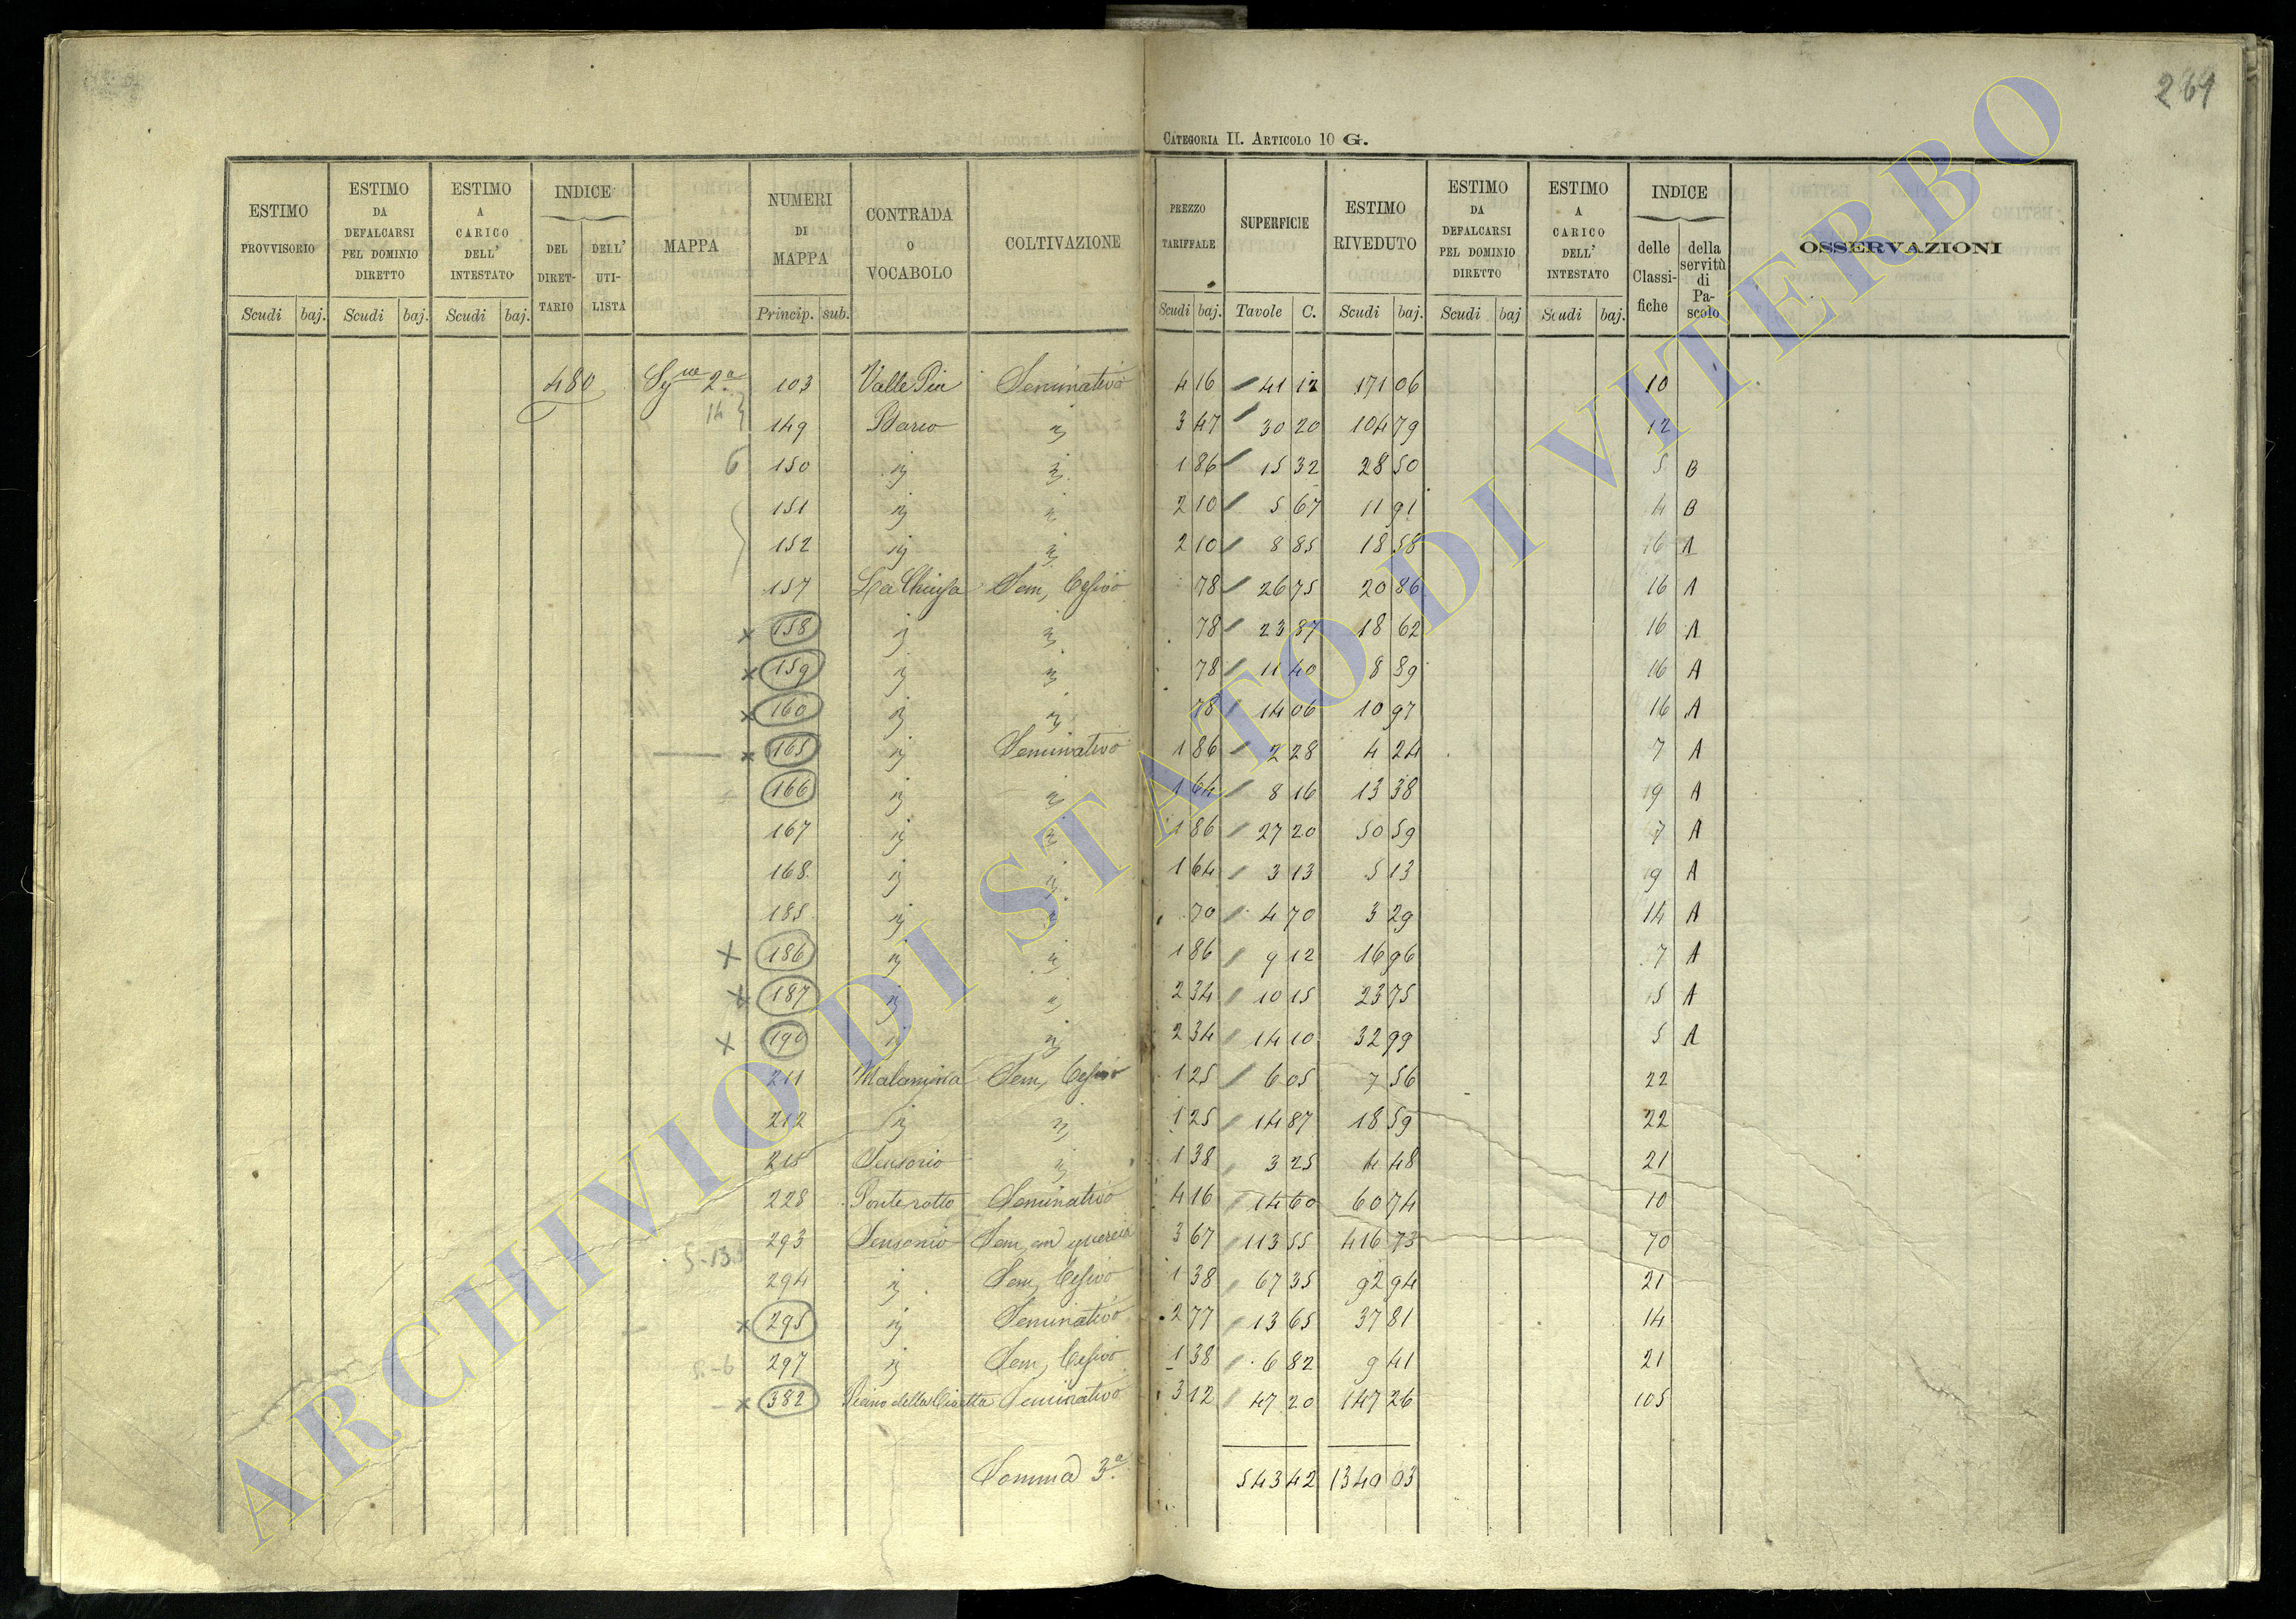 269
CATEGORIA II. ARTICOLO 10 G.
ESTIMO PROVVISORIO | ESTIMO DA DEFALCARSI PEL DOMINIO DIRETTO | ESTIMO A CARICO DELL' INTESTATO | INDICE DEL DIRETTARIO | DELL' UTILISTA | MAPPA | NUMERI DI MAPPA | CONTRADA O VOCABOLO | COLTIVAZIONE | PREZZO TARIFFALE | SUPERFICIE | ESTIMO RIVEDUTO | ESTIMO DA DEFALCARSI PEL DOMINIO DIRETTO | ESTIMO A CARICO DELL' INTESTATO | INDICE delle Classifiche | della servitù di Pascolo | OSSERVAZIONI
Scudi baj. | Scudi baj. | Scudi baj. | Princip. sub. | Scudi baj. | Tavole C. | Scudi baj. | Scudi baj | Scudi baj.
480 2a 103 Valle Pia Seminativo 4 16 41 12 171 06 10
14 149 Barco " 3 47 30 20 104 79 12
6 150 " " 1 86 15 32 28 50 5 B
151 " " 2 10 5 67 11 91 4 B
152 " " 2 10 8 85 18 58 16 A
157 La Chiusa Sem, Cesivo 78 26 75 20 86 16 A
x 158 " " 78 23 87 18 62 16 A
x 159 " " 78 11 40 8 89 16 A
x 160 " " 78 14 06 10 97 16 A
x 165 " Seminativo 1 86 2 28 4 24 7 A
166 " " 1 64 8 16 13 38 9 A
167 " " 1 86 27 20 50 59 7 A
168 " " 1 64 3 13 5 13 9 A
185 " " 70 4 70 3 29 14 A
x 186 " " 1 86 9 12 16 96 7 A
x 187 " " 2 34 10 15 23 75 5 A
x 190 " " 2 34 14 10 32 99 5 A
211 Malamina Sem, Cesivo 1 25 6 05 7 56 22
212 " " 1 25 14 87 18 59 22
215 Sensonio " 1 38 3 25 4 48 21
228 Ponte rotto Seminativo 4 16 14 60 60 74 10
5-13 293 Sensonio Sem, con quercia 3 67 113 55 416 73 70
294 " Sem, Cesivo 1 38 67 35 92 94 21
x 295 " Seminativo 2 77 13 65 37 81 14
297 " Sem, Cesivo 1 38 6 82 9 41 21
x 382 Piano della Civetta Seminativo 3 12 47 20 147 26 105
Somma 3.a 543 42 1340 03
ARCHIVIO DI STATO DI VITERBO